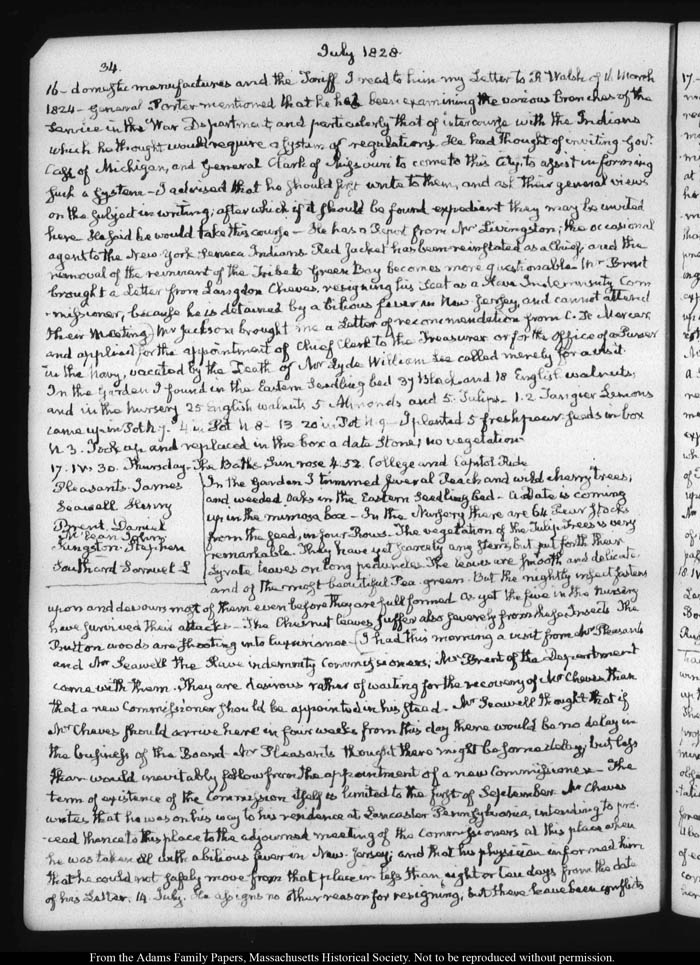 July 1828.
34.
16 - domestic manufactures and the Tariff I read to him my Letter to R Walsh of 16 March
1824 - General Porter mentioned that he had been examining the various branches of the
Service in the War Department, and particularly that of intercourse with the Indians
which he thought would require a System of regulations. He had thought of inviting Govr
Cass of Michigan, and General Clark of Missouri to come to this City, to assist in forming
such a system - I advised that he should first write to them, and ask their general views
on the subject in writing; after which if it should be found expedient they may be invited
here. He said he would take this course - He has a Report from Mr Livingston, the occasional
agent to the New York Seneca Indians. Red Jacket has been reinstated as a Chief and the
removal of the remnant of the Tribe to Green Bay becomes more questionable. Mr Brent
brought a Letter from Langdon Cheves, resigning his Seat as a Slave Indemnity Com
-missioner, because he is detained by a bilious fever in New Jersey, and cannot attend
their Meeting. Mr Jackson brought me a Letter of recommendation from C. F. Mercer,
and applied for the appointment of Chief Clerk to the Treasurer or for the Office of a Purser
in the Navy, vacated by the Death of Mr Lyde William Lee called merely for a visit.
In the Garden I found in the Eastern Seedling bed 37 black and 18 English walnuts,
and in the nursery 25 English walnuts 5 Almonds and 5 Tulips. 1. 2 Tangier Lemons
came up in Pot N 7. 4 in Pot N 8 - 13. 20 in Pot N 9 - I planted 5 fresh pear seeds in box
N 3. Took up and replaced in the box a date Stone; no vegetation
17. IV. 30. Thursday. The Baths. Sun rose 4. 52. College and Capitol Ride
Pleasants. James
Seawell Henry
Brent. Daniel
McLean John
Kingston. Stephen
Southard Samuel L
In the Garden I trimmed several Peach and wild cherry trees;
and weeded Oaks in the Eastern Seedling bed - A date is coming
up in the mimosa box - In the Nursery there are 64 Pear Stocks
from the seed, in four Rows. The vegetation of the Tulip Trees is very
remarkable. They have yet scarcely any Stem, but put forth their
Lyrate leaves on long peduncles. The leaves are smooth and delicate
and of the most beautiful Pea-green. But the nightly insect fastens
upon and devours most of them even before they are full formed. As yet the five in the Nursery
have survived their attacks - The Chestnut leaves suffer also severely from these Insects. The
Button woods are shooting into luxuriance. I had this morning a visit from Mr Pleasants
and Mr Seawell the Slave indemnity Commissioners; Mr Brent of the Department
came with them. They are desirous rather of waiting for the recovery of Mr Cheves than
that a new Commissioner should be appointed in his stead. Mr Seawell thought that if
Mr Cheves should arrive here in four weeks from this day there would be no delay in
the business of the Board - Mr Pleasants thought there might be some delay, but less
than would inevitably follow from the appointment of a new Commissioner - The
term of existence of the Commission itself is limited to the first of September. Mr Cheves
writes that he was on his way to his residence at Lancaster Pennsylvania, intending to pro-
-ceed thence to this place to the adjourned meeting of the commissioners at this place when
he was taken ill with a bilious fever in New-Jersey; and that his physician informed him
that he could not safely move from that place in less than eight or ten days from the date
of his Letter. 14. July. He assigns no other reason for resigning, but there have been conflicts
From the Adams Family Papers, Massachusetts Historical Society. Not to be reproduced without permission.